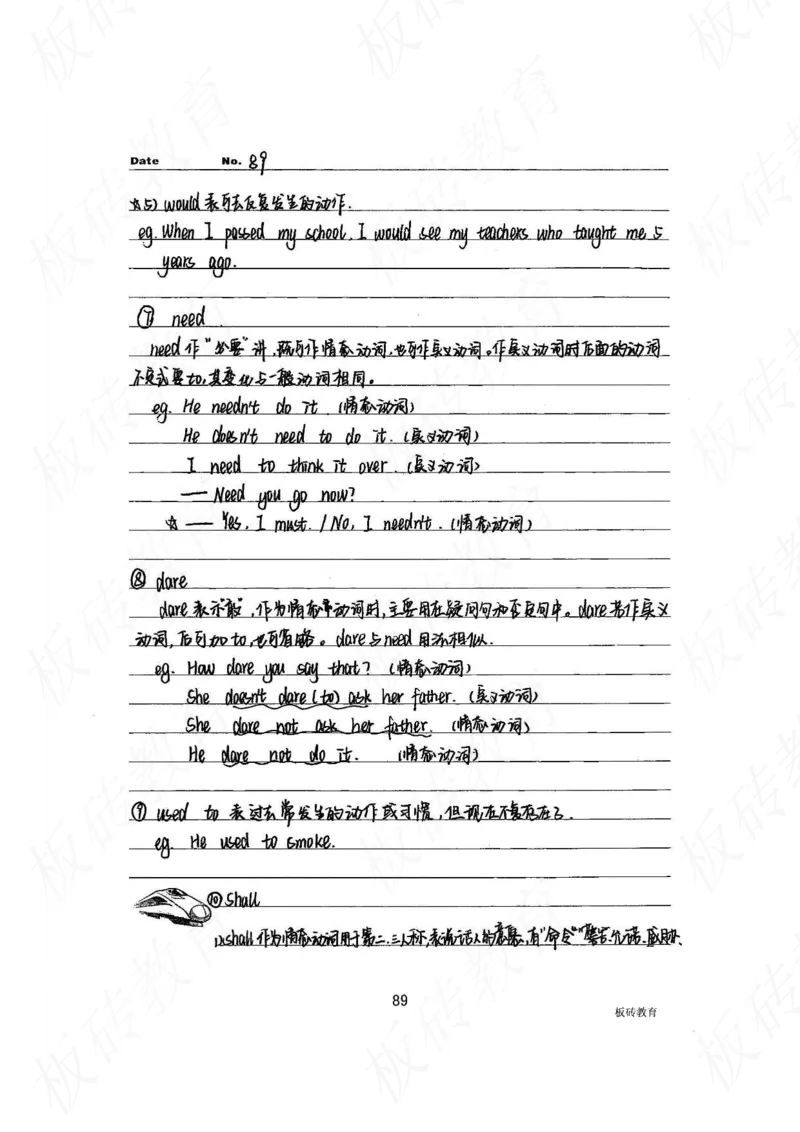 Date No. 89
☆5) would 表过去反复发生的动作.
eg. When I passed my school, I would see my teachers who taught me 5
years ago.
⑦ need
need作“必要”讲,既可作情态动词,也可作实义动词。作实义动词时后面的动词
不定式要to,其变化与一般动词相同。
eg. He needn't do it. (情态动词)
He doesn't need to do it. (实义动词)
I need to think it over. (实义动词)
— Need you go now?
☆ — Yes, I must. / No, I needn't. (情态动词)
⑧ dare
dare表示“敢”,作为情态动词时,主要用在疑问句和否定句中。dare若作实义
动词,后可加to,也可省略。dare与need用法相似.
eg. How dare you say that? (情态动词)
She doesn't dare (to) ask her father. (实义动词)
She dare not ask her father. (情态动词)
He dare not do it. (情态动词)
⑨ used to 表过去常发生的动作或习惯,但现在不复存在了.
eg. He used to smoke.
⑩ Shall
1) shall作为情态动词用于第二.三人称,表说话人的意愿,有“命令”“警告.允诺.威胁、
89
板砖教育